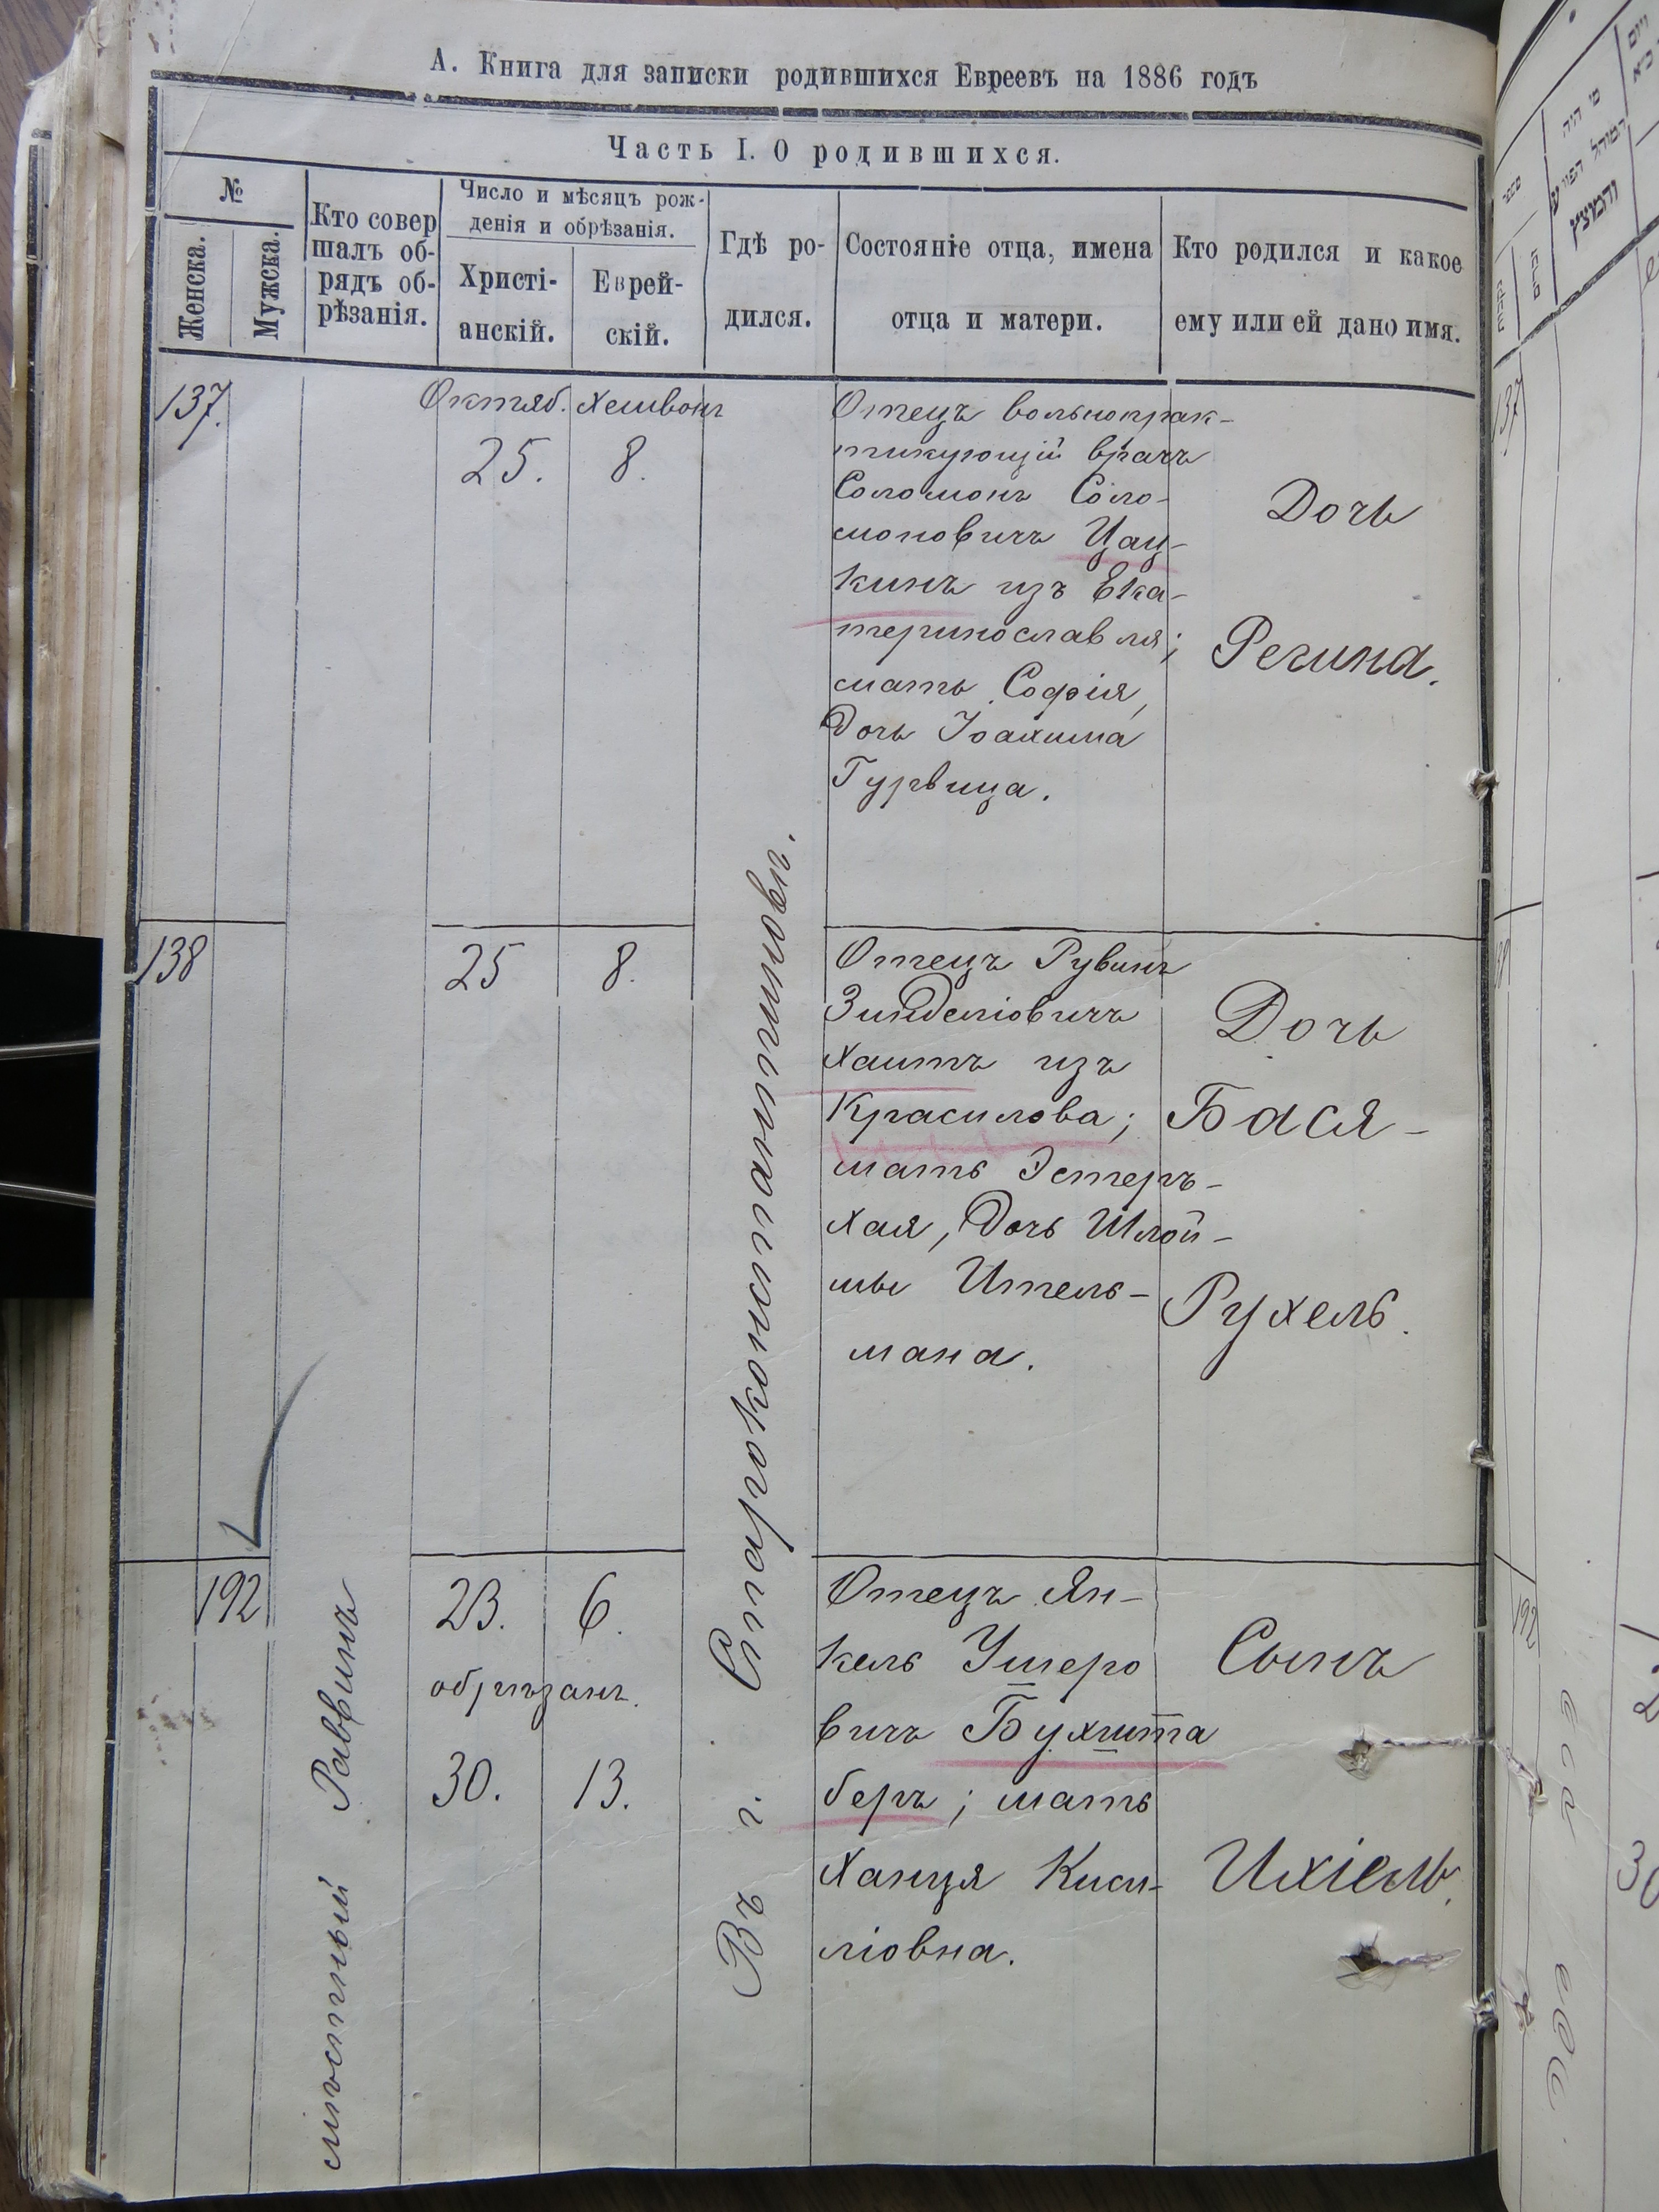 А. Книга для записки родившихся Евреевъ на 1886 годъ
Часть I. О родившихся.
№
Женска.
Мужска.
Кто совер
шалъ об-
рядъ об-
рѣзанія.
Число и мѣсяцъ рож-
денія и обрѣзанія.
Христі-
анскій.
Еврей-
скій.
Гдѣ ро-
дился.
Состояніе отца, имена
отца и матери.
Кто родился и какое
ему или ей дано имя.
137.
Октяб. Хешвонъ
25. 8.
Отецъ вольнопрак-
тикующій врачъ
Соломонъ Соло-
моновичъ Цац-
кинъ изъ Ека-
теринославля;
мать Софія,
дочь Іоахима
Гурвица.
Дочь
Регина.
138
25 8.
Отецъ Рувинъ
Зинделіовичъ
Хаитъ изъ
Красилова;
мать Эстеръ-
Хая, дочь Шлой-
мы Ительь-
мана.
Дочь
Бася-
Рухель.
192
мѣстный Раввинъ
23. 6.
обрѣзанъ.
30. 13.
Въ г. Староконстантиновѣ.
Отецъ Ян-
кель Ушеро
вичъ Бухшта
беръ; мать
Ханця Киси-
ліовна.
Сынъ
Ихіель.
137
192
30